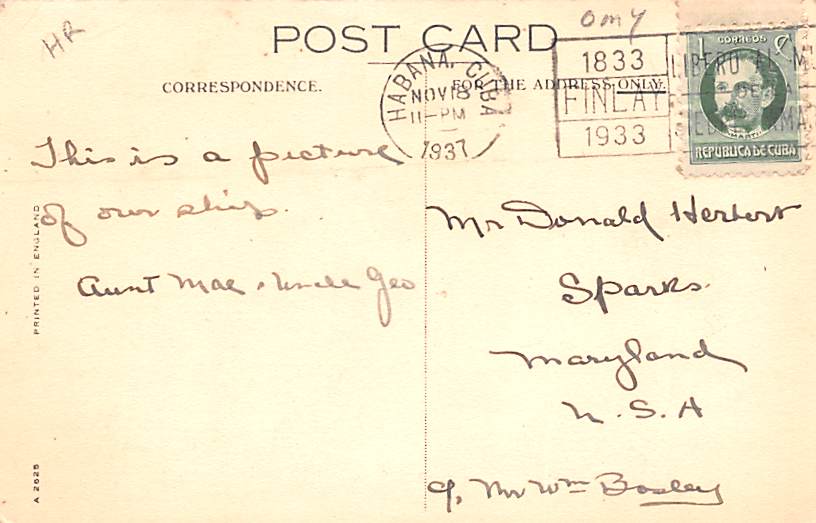 HR
0m4
POST CARD
CORRESPONDENCE.
FOR THE ADDRESS ONLY.
HABANA, CUBA
NOV 18
11-PM
1937
1833
FINLAY
1933
CORREOS
REPUBLICA DE CUBA
This is a picture
of our ship.
Aunt Mae & Uncle Geo
Mr Donald Herbert
Sparks.
Maryland
U.S.A
c/o Mr Wm Bosley
PRINTED IN ENGLAND
A 2625